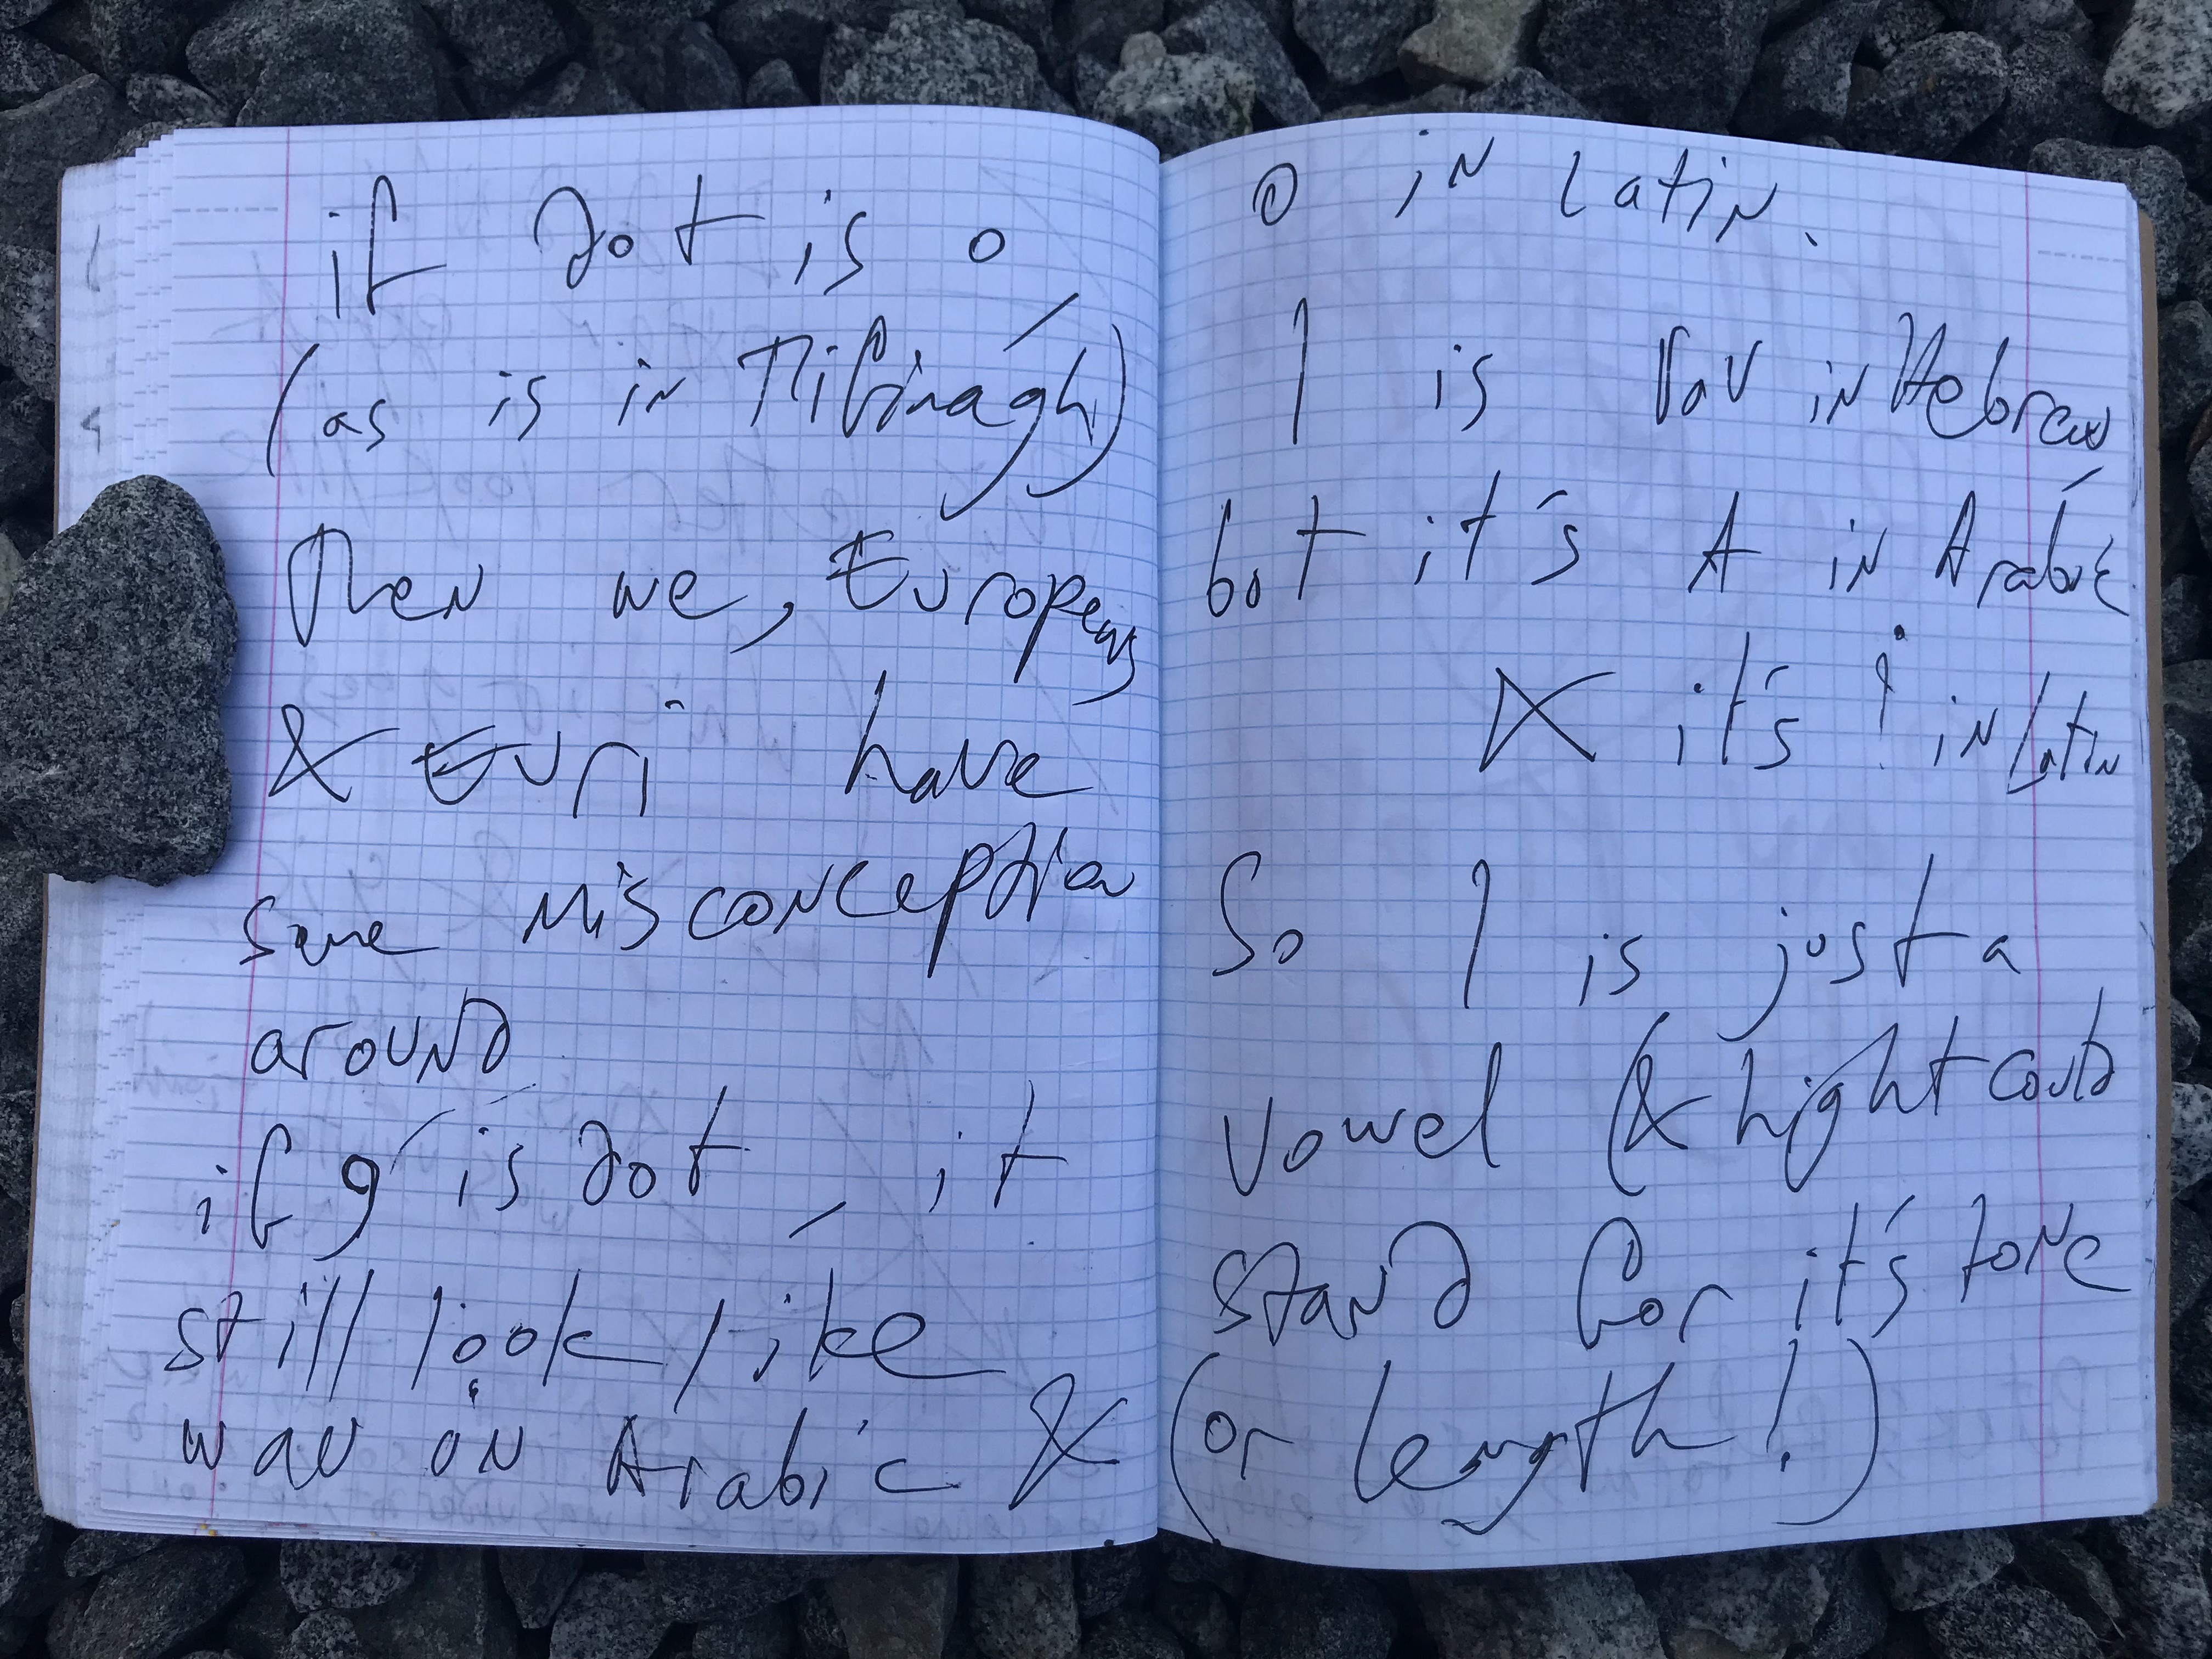 if dot is o
(as is in Tifinagh)
then we, Europeans
& Euri have
some misconception
around
if 9 is dot, it
still look like
waw on Arabic &
o in Latin.
I is Vav in Hebrew
but it's A in Arabic
& it's i in Latin
So I is just a
Vowel (& hight could
stand for it's tone
(or length!)